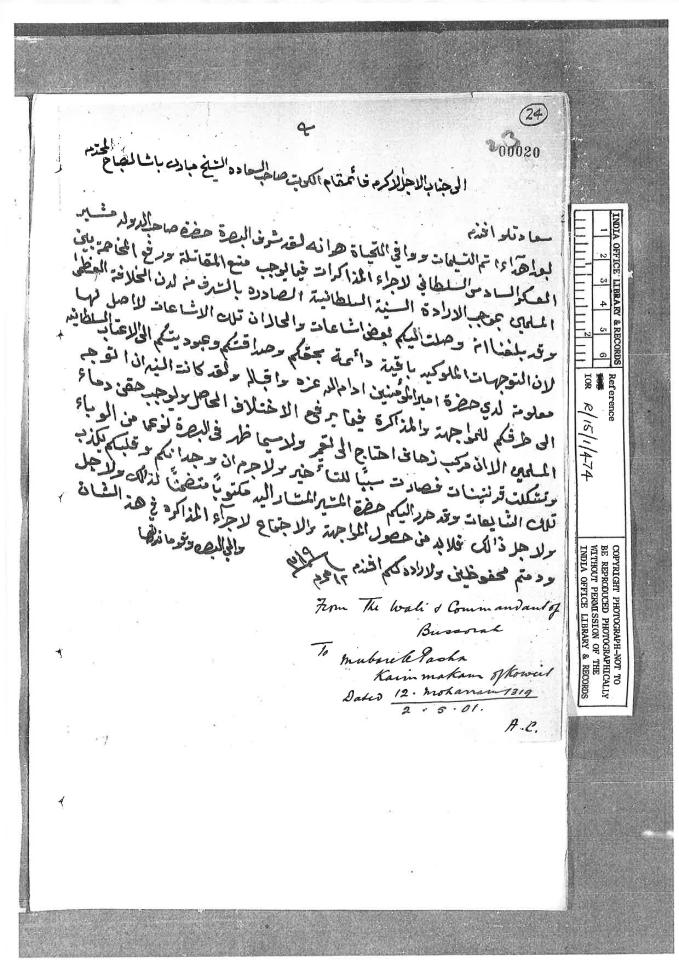 24
23
00020
الى جناب الاجل الاكرم قائمقام الكويت صاحب السعاده الشيخ مبارك باشا الصباح المحترم
سعادتلو افندم
بعد اهداء اتم التسليمات ووافي التحياة هوانه لقد شرف البصرة حضرة صاحب الدوله مشير
المعسكر السادس السلطاني لاجراء المذاكرات فيما يوجب منع المقاتلة ورفع المخاصمة بين
المسلمين بموجب الارادة السنية السلطانية الصادره بالشرف من لدن الخلافة العظمى
وقد بلغنا انه وصلت اليكم بعض اشاعات والحال ان تلك الاشاعات لا اصل لها
لان التوجهات الملوكيه باقية دائمة بحقكم وصداقتكم وعبوديتكم الى الاعتاب السلطانيه
معلومة لدى حضرة امير المؤمنين ادام الله عزه واقباله ولقد كانت النيه ان اتوجه
الى طرفكم للمواجهة والمذاكرة فيما يرفع الاختلاف الحاصل ويوجب حقن دماء
المسلمين الا ان مركب زحاف احتاج الى تعمير ولا سيما ظهر في البصرة نوعا من الوباء
وتشكلت قرنتينات فصارت سببا للتأخير ولا جرم ان وجدانكم وقلبكم يكذب
تلك الشايعات وقد حرر اليكم حضرة المشير المشار اليه مكتوبا متضمنا لذلك ولاجل
ولاجل ذالك فلابد من حصول المواجهة والاجتماع لاجراء المذاكره في هذ الشان
ودمتم محفوظين ولاراده لكم افندم ١٢ محرم ٣١٩
والي البصره وقومندانها
From The Wali & Commandant of
Bussorah
To Mubarek Pasha
Kaimmakam of Koweit
Dated 12. Moharram 1319
2.5.01.
A.C.
INDIA OFFICE LIBRARY & RECORDS
1 2 3 4 5 6
2
Reference
IOR R/15/1/474
COPYRIGHT PHOTOGRAPH-NOT TO
BE REPRODUCED PHOTOGRAPHICALLY
WITHOUT PERMISSION OF THE
INDIA OFFICE LIBRARY & RECORDS